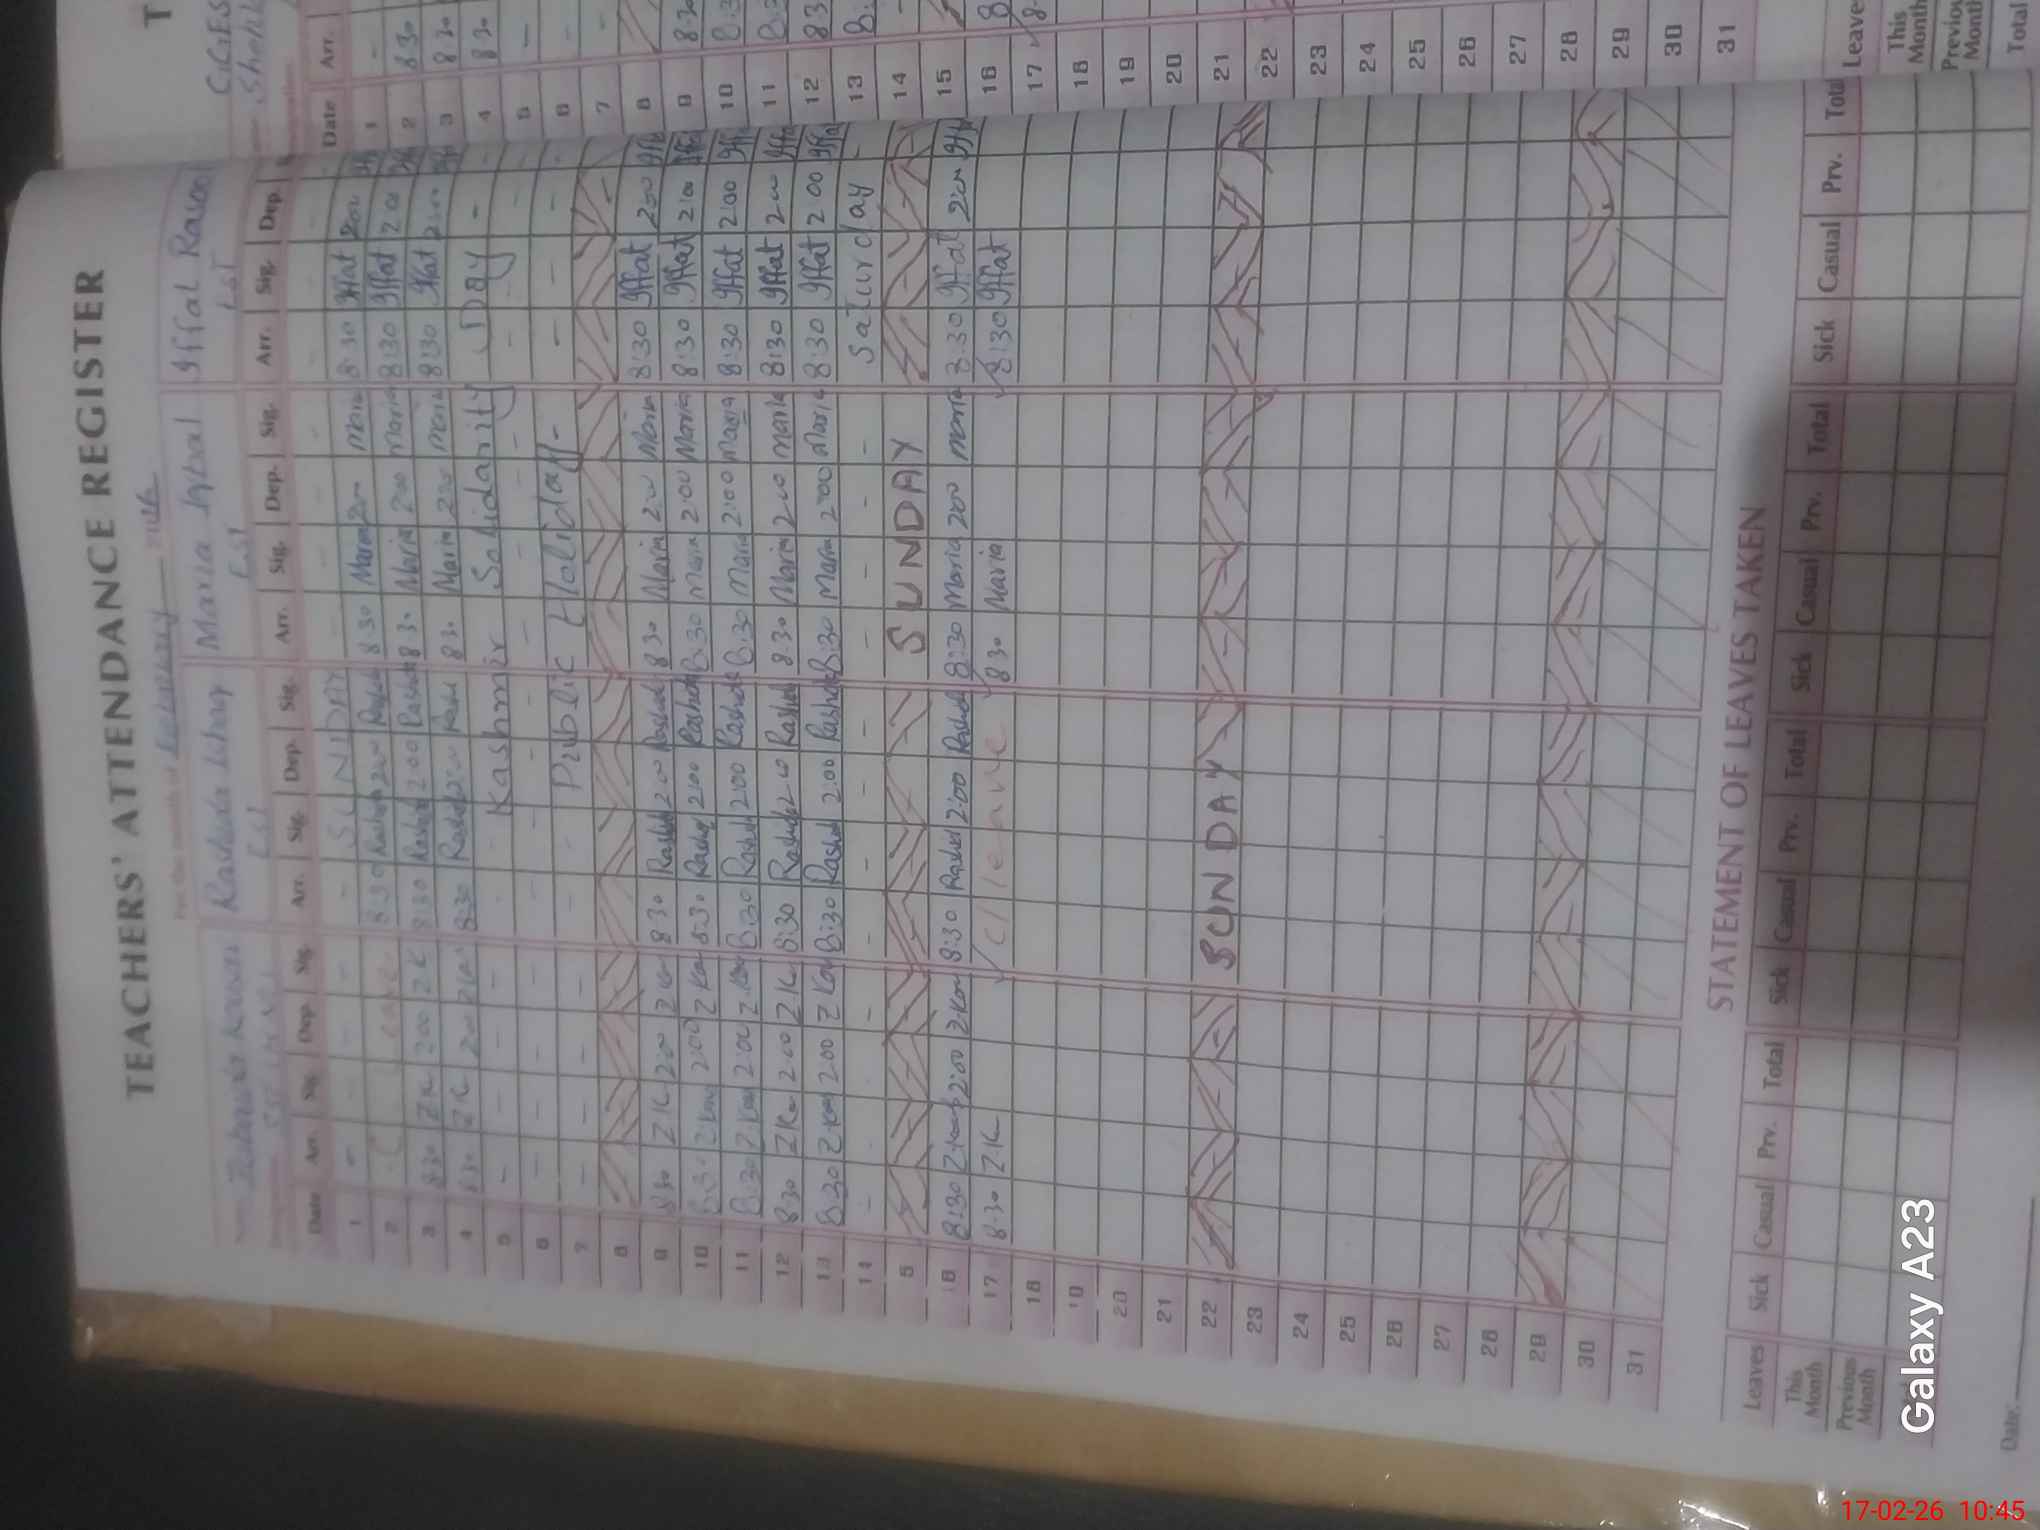 TEACHERS' ATTENDANCE REGISTER
For the month of February 2026
Kousar Rashida Ishaq Maria Iqbal Iffat
EST EST EST
Date Arr. Sig. Dep. Sig. Arr. Sig. Dep. Sig. Arr. Sig. Dep. Sig. Arr. Sig. Dep.
1 - - - - - - SUNDAY - - - -
2 C Leave 8:30 Rashida 2:00 Rashida 8:30 Maria 2:00 Maria 8:30 Iffat 2:00
3 8:30 Z.K 2:00 Z.K 8:30 Rashida 2:00 Rashida 8:30 Maria 2:00 Maria 8:30 Iffat 2:00
4 8:30 Z.K 2:00 Z.K 8:30 Rashida 2:00 Rashida 8:30 Maria 2:00 Maria 8:30 Iffat 2:00
5 - Kashmir Solidarity Day -
6 - - - - - - - - - - -
7 - - - - Public Holiday - - -
8
9 8:30 Z.K 2:00 Z.K 8:30 Rashida 2:00 Rashida 8:30 Maria 2:00 Maria 8:30 Iffat 2:00
10 8:30 Z.Kou 2:00 Z.Kou 8:30 Rashida 2:00 Rashida 8:30 Maria 2:00 Maria 8:30 Iffat 2:00
11 8:30 Z.Kou 2:00 Z.Kou 8:30 Rashida 2:00 Rashida 8:30 Maria 2:00 Maria 8:30 Iffat 2:00
12 8:30 Z.K 2:00 Z.K 8:30 Rashida 2:00 Rashida 8:30 Maria 2:00 Maria 8:30 Iffat 2:00
13 8:30 Z.Kou 2:00 Z.Kou 8:30 Rashida 2:00 Rashida 8:30 Maria 2:00 Maria 8:30 Iffat 2:00
14 - - - - - - - - - Saturday -
5 SUNDAY
16 8:30 Z.Kou 2:00 Z.Kou 8:30 Rashida 2:00 Rashida 8:30 Maria 2:00 Maria 8:30 Iffat 2:00
17 8:30 Z.K C/leave 8:30 Maria 8:30 Iffat
18
19
20
21
22 SUNDAY
23
24
25
26
27
28
29
30
31
STATEMENT OF LEAVES TAKEN
Leaves Sick Casual Prv. Total Sick Casual Prv. Total Sick Casual Prv. Total Sick Casual Prv. Total
This Month
Previous Month
Date:
T
GGES
Date Arr.
1 -
2 8:30
3 8:30
4 8:30
5 -
6 -
7 -
8
9 8:30
10
11
12
13
14 -
15
16 8
17 8
18
19
20
21
22
23
24
25
26
27
28
29
30
31
Leave
This Month
Previou Month
Total
Galaxy A23
17-02-26 10:45